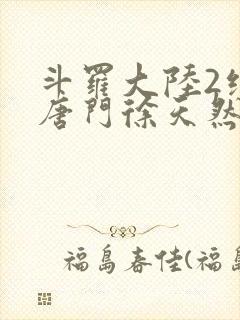 斗羅大陸2
唐門徐天然
福島春佳(福島